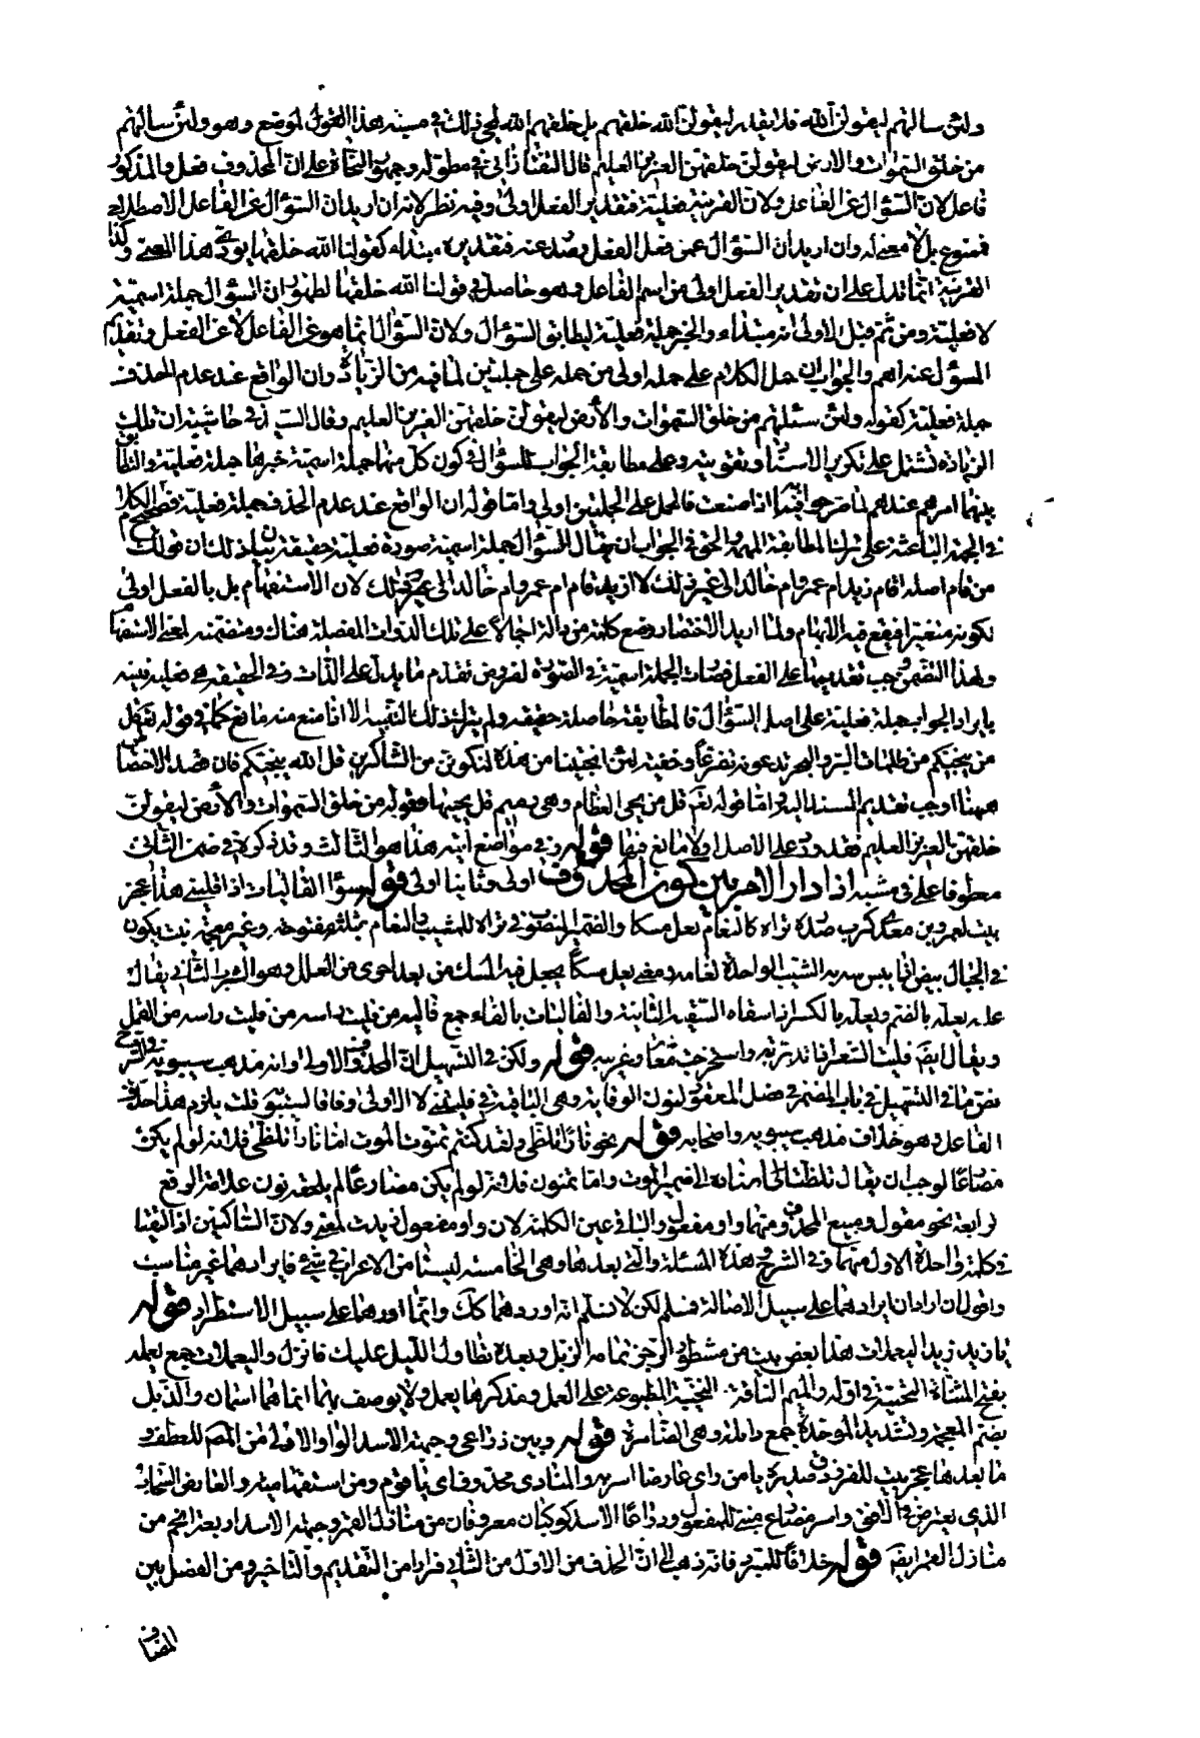 ولئن سالتهم ليقولن الله فلا يقدر ليقولن الله خلقهم بل خلقهم الله لمجئ ذلك في مشبه هذا القول لموضع وهو ولئن سالتهم
من خلق السموات والارض ليقولن خلقهن العزيز العليم قال التفتازاني في مطوله وجمهور النحاة على ان المحذوف فعل والمذكور
فاعل لان السؤال عن الفاعل ولان القرينة فعلية فتقدير الفعل اولى وفيه نظر لانه ان اريد ان السؤال عن الفاعل الاصطلاحي
فممنوع بل لا معنى له وان اريد ان السؤال عمن فعل الفعل وصدر عنه فتقديره مبتداء كقولنا الله خلقها يودي هذا المعنى وكذا
القرينة انما تدل على ان تقدير الفعل اولى من اسم الفاعل وهو حاصل في قولنا الله خلقها لظهور ان السؤال جملة اسمية
لا فعلية ومن ثم قيل الاولى انه مبتداء والخبر جملة فعلية ليطابق السؤال ولان السؤال انما هو عن الفاعل لا عن الفعل وتقديم
المسؤل عنه اهم والجواب ان حمل الكلام على جملة اولى من حمله على جملتين لما فيه من الزيادة وان الواقع عند عدم الحذف
جملة فعلية كقوله ولئن سئلتهم من خلق السموات والأرض ليقولن خلقهن العزيز العليم وقال السيد في حاشيته ان تلك
الزيادة تشتمل على تكرير الاسناد وتقويته وعلى مطابقة الجواب للسؤال في كون كل منهما جملة اسمية خبرها جملة فعلية والتطابق
بينهما امر مهم عندهم لما صرحوا به في ماذا صنعت فالحمل على الجملتين اولى واما قوله ان الواقع عند عدم الحذف جملة فعلية فصحيح الكلام
في الجهة الباعثة على ترك المطابقة المهمة والحق في الجواب ان يقال السؤال جملة اسمية صورة فعلية حقيقة بيان ذلك ان قولك
من قام اصله اقام زيد ام عمرو ام خالد الى غير ذلك لا ازيد قام ام عمرو ام خالد الى غير ذلك لان الاستفهام بل بالفعل اولى
لكونه متغيرا فيقع فيه الابهام ولما اريد الاختصار وضع كلمة من دالة اجمالا على تلك الذوات المفصلة هناك ومتضمنة لمعنى الاستفهام
ولهذا التضمن وجب تقديمها على الفعل فصارت الجملة اسمية في الصورة لعروض تقدم ما يدل على الذات وفي الحقيقة هي فعلية فنبه
بايراد الجواب جملة فعلية على اصل السؤال فالمطابقة حاصلة حقيقة ولم يترك ذلك التنبيه الا اذا منع منه مانع كما في قوله تعالى قل
من ينجيكم من ظلمات البر والبحر تدعونه تضرعا وخفية لئن انجيتنا من هذه لنكونن من الشاكرين قل الله ينجيكم فان قصد الاختصاص
ههنا اوجب تقديم المسند اليه واما قوله تعالى قل من يحي العظام وهي رميم قل يحييها وقوله من خلق السموات والأرض ليقولن
خلقهن العزيز العليم فقد ورد على الاصل اولا مانع فيها قوله وفي مواضع اتيه هذا هو الثالث وقد ذكره في ضمن الثاني
معطوفا على في مشبه اذا دار الامر بين كون المحذوف اولى وثانيا اولى قوله يسؤا الفاليات اذا فليني هذا عجز
بيت لعمرو بن معدي كرب صدره تراه كالثغام يعل مسكا والضمير المنصوب في تراه للشيب والثغام بمثلثة مفتوحة وغين معجمة نبت يكون
في الجبال ابيض اذا يبس يشبه به الشيب الواحدة ثغامة ومعنى يعل مسكا يجعل فيه المسك من بعد اخرى من العلل وهو الشرب الثاني يقال
عله يعله بالضم ويعله بالكسر اذا سقاه السقية الثانية والفاليات بالفاء جمع فالية من فليت راسه من فليت راسه من القمل
ويقال ايضا فليت الشعر اذا تدبرته واستخرجت معانيه وغريبه قوله ولكن في التسهيل ان المحذوف الاولى وانه مذهب سيبويه
نص ما في التسهيل في باب المضمر في فصل المعقود لنون الوقاية وهي الباقية في فليني لا الاولى وفاقا لسيبويه قلت يلزم هذا حذف
الفاعل وهو خلاف مذهب سيبويه واصحابه قوله نحو نارا تلظى ولقد كنتم تمنون الموت اما نارا تلظى فلانه لو لم يكن
مضارعا لوجب ان يقال تلظت لاسناده الى ضمير المؤنث واما تمنون فلانه لو لم يكن مضارعا لم يلحقه نون علامة الرفع
رابعة نحو مقول ومبيع المحذوف منهما واو مفعول والباقي عين الكلمة لان واو مفعول زيدت لمعنى ولان الساكنين اذا التقيا
في كلمة واحدة الاول منهما وفي الشرح هذه المسئلة والتي بعدها وهي الخامسة ليستا من الاعراب في شئ فايرادهما غير مناسب
واقول ان اراد ان ايرادهما على سبيل الاصالة فمسلم لكن لا نسلم انه اوردهما كك وانما اوردهما على سبيل الاستطراد قوله
يا زيد زيد اليعملات هذا بعض بيت من مشطور الرجز تمامه الذبل وبعده تطاول الليل عليك فانزل واليعملات جمع يعملة
بفتح المثناة التحتية في اوله والميم الناقة النجيبة المطبوعة على العمل ومذكرها يعمل ولا يوصف بهما انما هما اسمان والذبل
بضم المعجمة وتشديد الموحدة جمع ذابلة وهي الضامرة قوله وبين ذراعي وجبهة الاسد الواو الاولى من المص للعطف و
ما بعدها عجز بيت للفرزدق صدره يا من راى عارضا اسر به والمنادى محذوف اى يا قوم ومن استفهامية والعارض السحاب
الذي يعترض في الافق واسر مضارع مبني للمفعول وذراعا الاسد كوكبان معروفان من منازل القمر وجبهة الاسد اربعة انجم من
منازل القمر ايضا قوله خلافا للمبرد فانه ذهب الى ان الحذف من الاول من الثاني فرارا من التقديم والتاخير ومن الفصل بين
المضاف